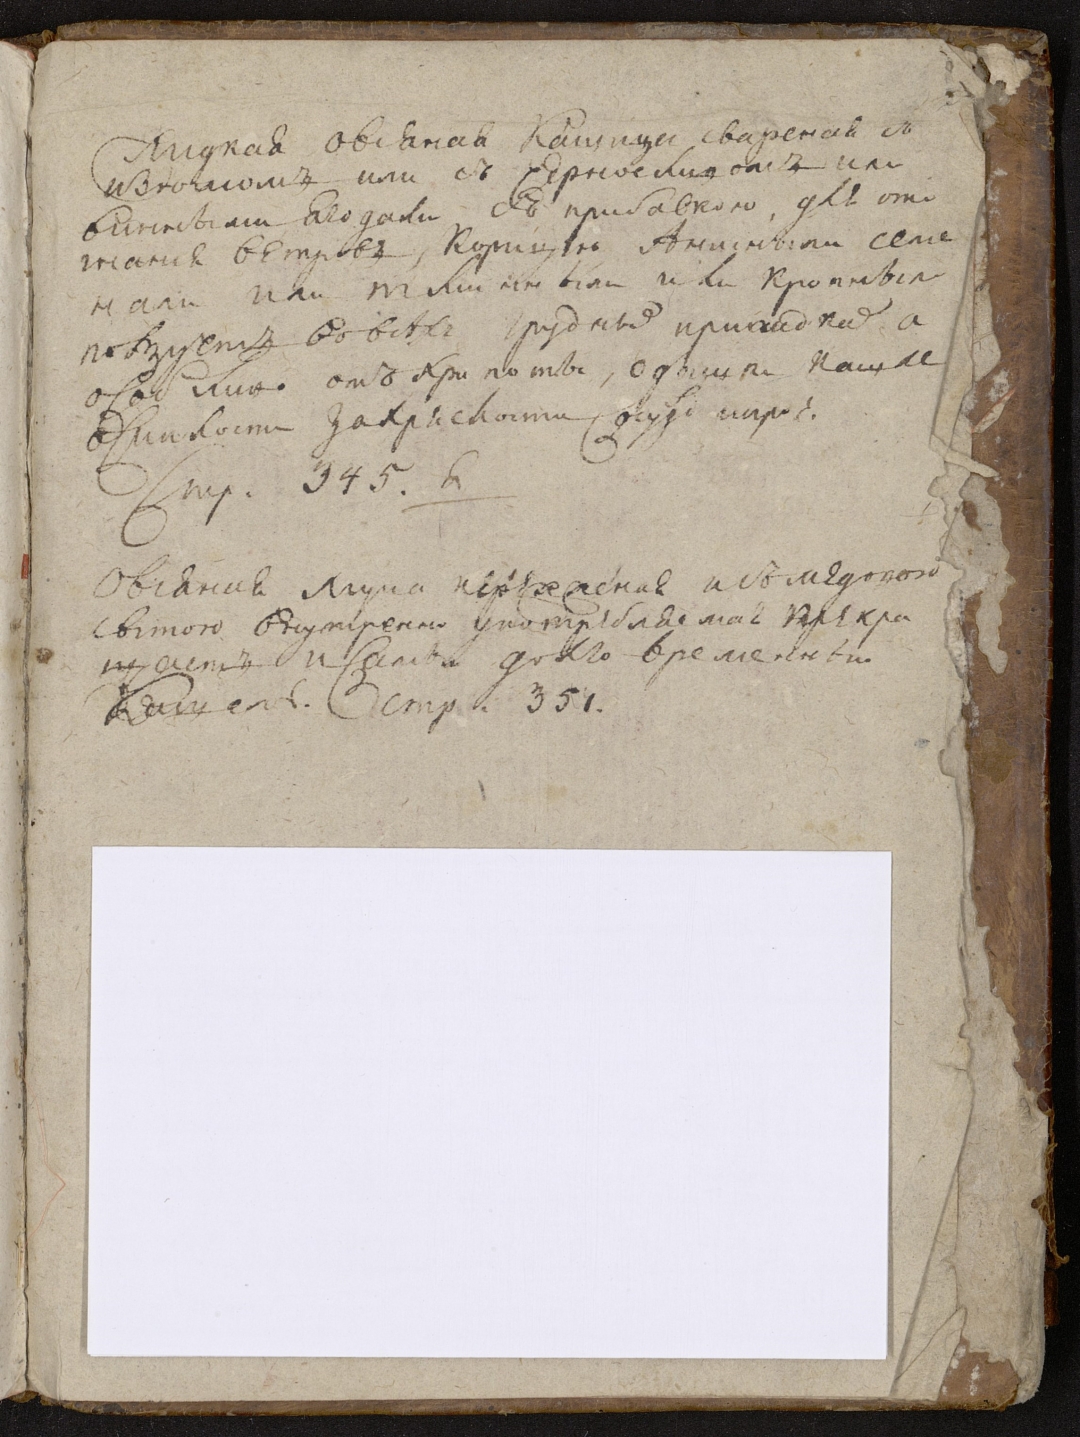 Жидкая овсяная кашица свареная съ
изюмомъ или съ черносливомъ или
винными ягодами, съ прибавкою, для отг
нания ветровъ, корицы Анисными семе
нами или тминными или кропными
пользуетъ во всехъ грудныхъ припадкахъ а
особливо отъ хрипоты, одышки кашле
осиплости
Стр. 345.
Овсяная мука и съ медовою
сытою внутренно употребляемая прекра
щаетъ и самый долго временный
Кашель. стр. 351.